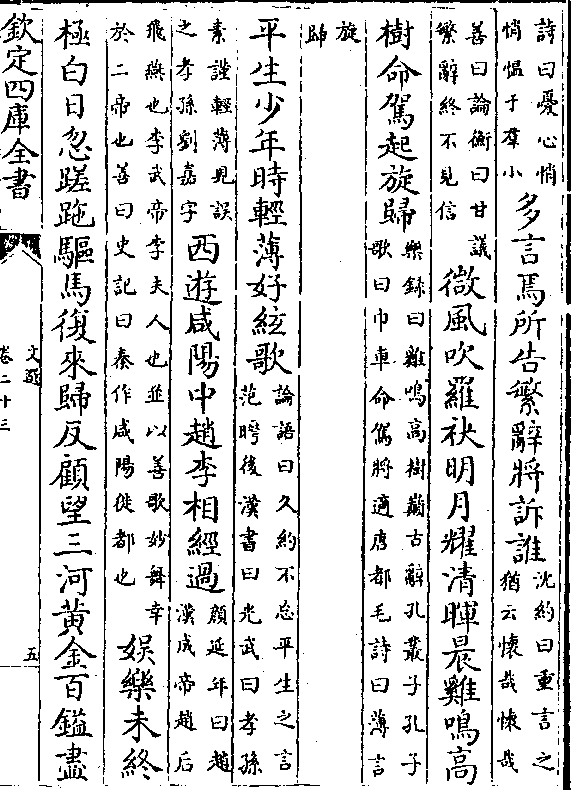 詩曰憂心悄
悄慍于羣小
多言焉所告繁辭將訴誰
沈約曰重言之
猶云懷哉懷哉
善曰論衡曰甘議
繁辭終不見信
微風吹羅袂明月耀清暉晨雞鳴高
樹命駕起旋歸
樂録曰雞鳴高樹巔古辭孔叢子孔子
歌曰巾車命駕將適唐都毛詩曰薄言
旋
歸
平生少年時輕薄好絃歌
論語曰久約不忘平生之言
范曄後漢書曰光武曰孝孫
素謹輕薄見誤
之孝孫劉嘉字
西遊咸陽中趙李相經過
顔延年曰趙
漢成帝趙后
飛燕也李武帝李夫人也並以善歌妙舞幸
於二帝也善曰史記曰秦作咸陽徙都也
娯樂未終
極白日忽蹉跎驅馬復來歸反顧望三河黃金百鎰盡
欽定四庫全書
文選
卷二十三
五